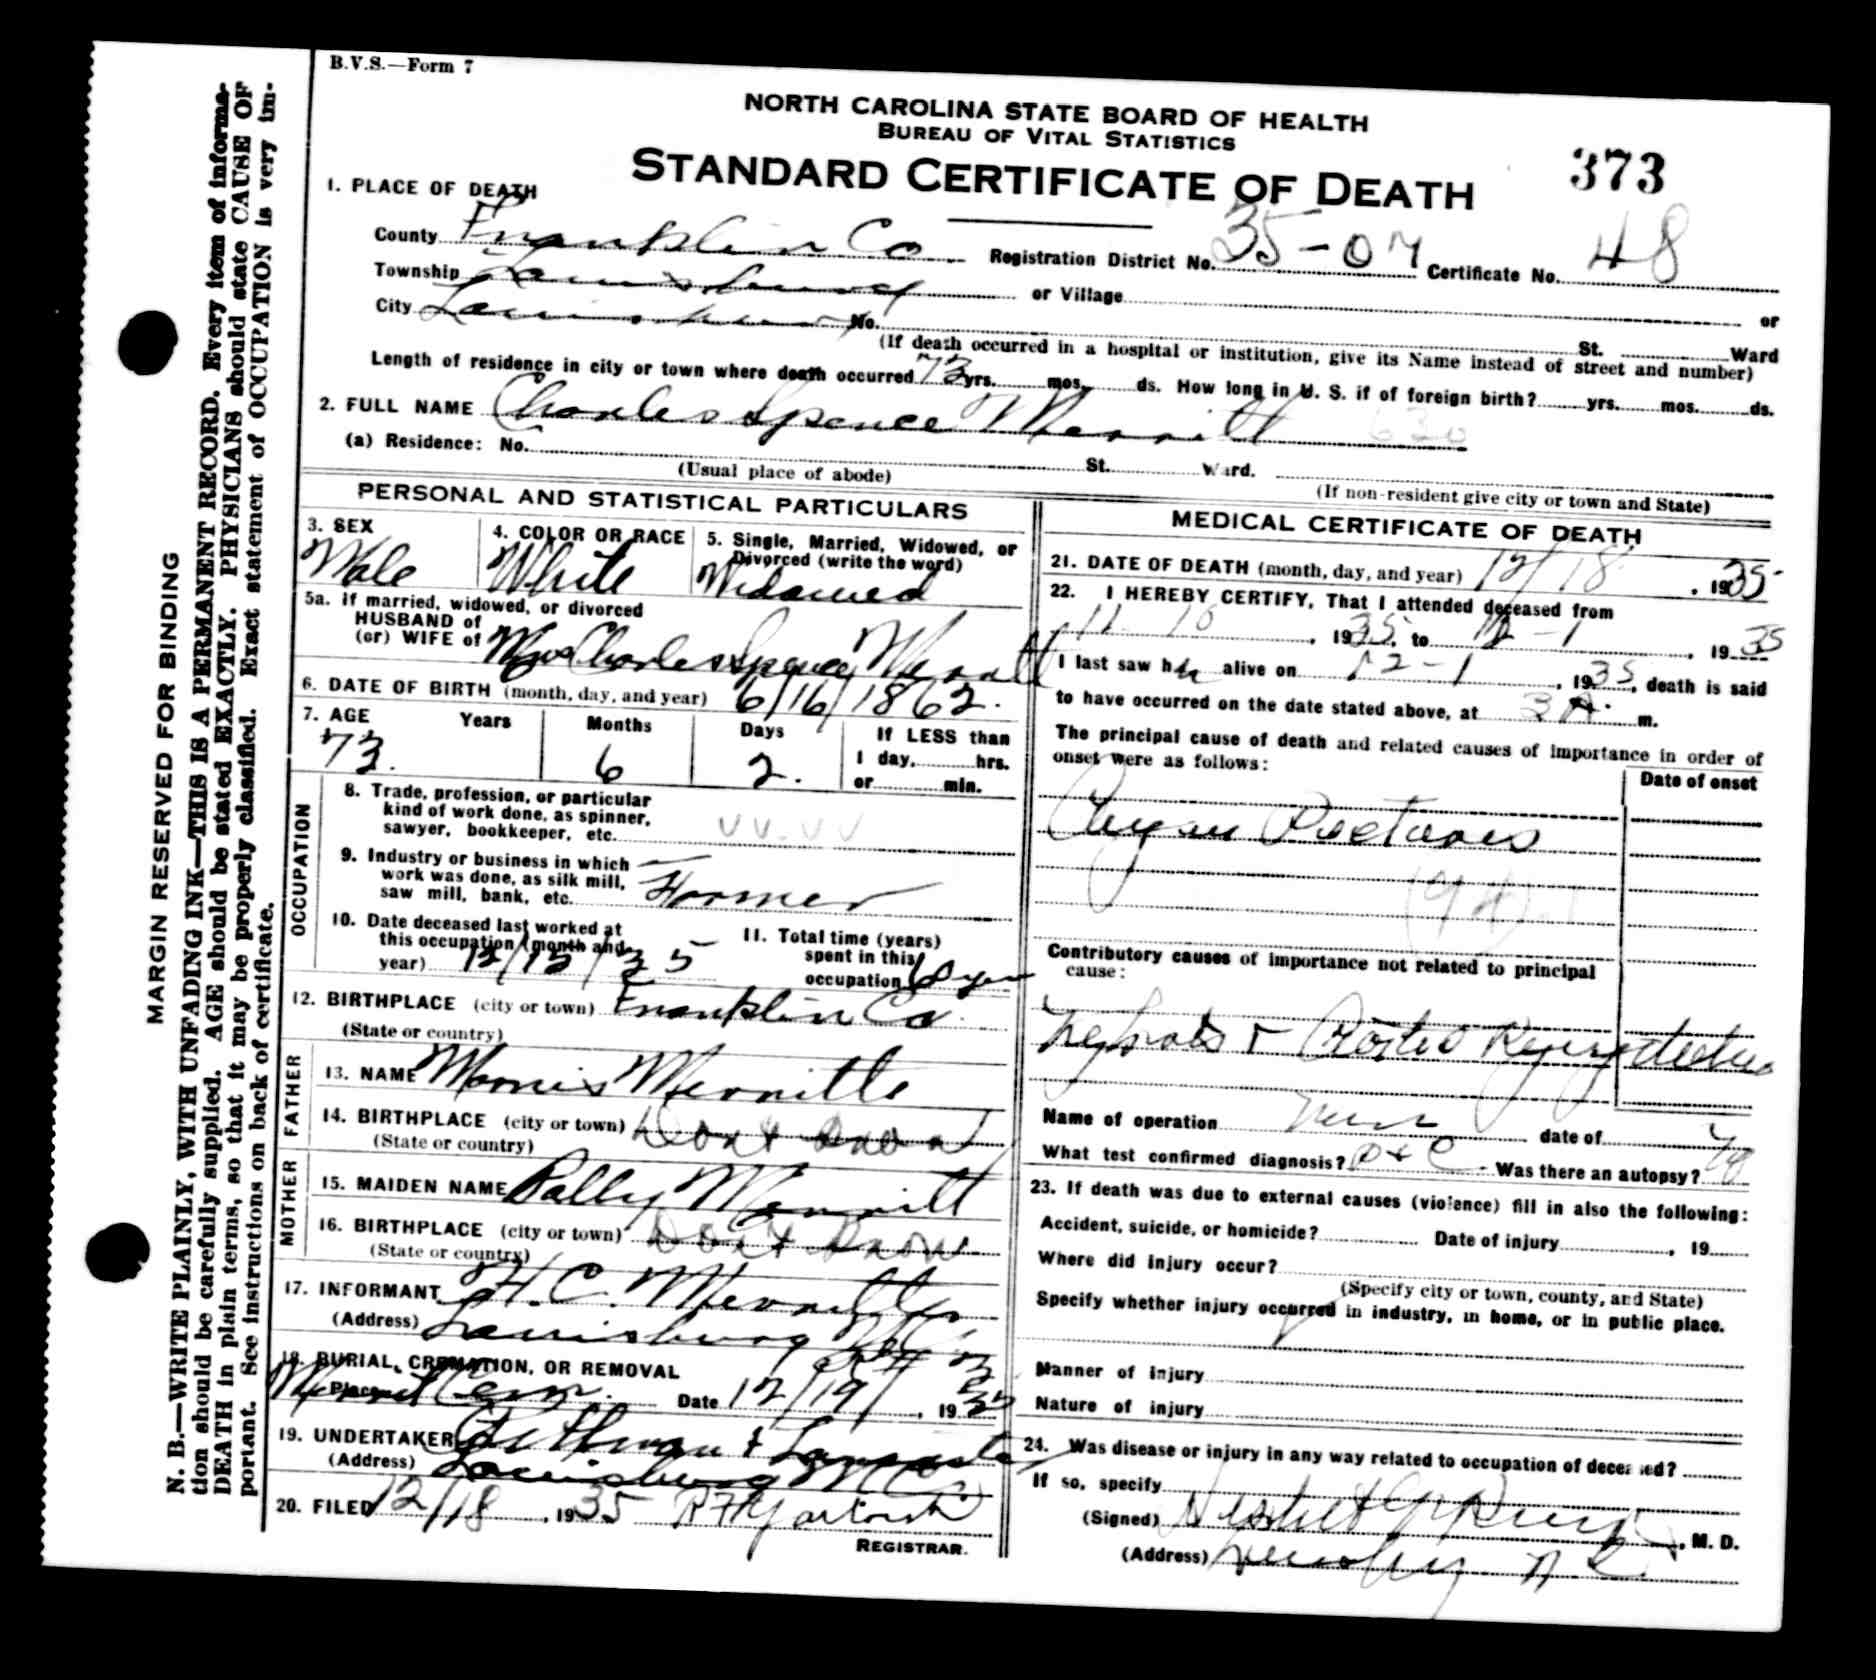 B.V.S.—Form 7
NORTH CAROLINA STATE BOARD OF HEALTH
BUREAU OF VITAL STATISTICS
STANDARD CERTIFICATE OF DEATH
373
1. PLACE OF DEATH
County Franklin Co Registration District No. 35-07 Certificate No. 48
Township Louisburg or Village or
City Louisburg No. St. Ward
(If death occurred in a hospital or institution, give its Name instead of street and number)
Length of residence in city or town where death occurred 73 yrs. mos. ds. How long in U. S. if of foreign birth? yrs. mos. ds.
2. FULL NAME Charles Spence Merritt 630
(a) Residence: No. St. Ward.
(Usual place of abode) (If non-resident give city or town and State)
PERSONAL AND STATISTICAL PARTICULARS
3. SEX
Male
4. COLOR OR RACE
White
5. Single, Married, Widowed, or
Divorced (write the word)
Widowed
5a. If married, widowed, or divorced
HUSBAND of
(or) WIFE of Mrs Charles Spence Merritt
6. DATE OF BIRTH (month, day, and year) 6/16/1862.
7. AGE Years Months Days If LESS than
1 day, hrs.
or min.
73. 6 2.
OCCUPATION
8. Trade, profession, or particular
kind of work done, as spinner,
sawyer, bookkeeper, etc.
9. Industry or business in which
work was done, as silk mill,
saw mill, bank, etc. Farmer
10. Date deceased last worked at
this occupation (month and
year) 12/15/35
11. Total time (years)
spent in this
occupation
12. BIRTHPLACE (city or town) Franklin Co.
(State or country)
FATHER
13. NAME Morris Merritt
14. BIRTHPLACE (city or town) Dont Know
(State or country)
MOTHER
15. MAIDEN NAME Merritt
16. BIRTHPLACE (city or town) Dont Know
(State or country)
17. INFORMANT H. C. Merritt
(Address) Louisburg N.C.
18. BURIAL, CREMATION, OR REMOVAL
Place Merritt Cem. Date 12/19/, 1935
19. UNDERTAKER & Lancaster
(Address) Louisburg N C
20. FILED 12/18, 1935 R F Yarborough
REGISTRAR.
MEDICAL CERTIFICATE OF DEATH
21. DATE OF DEATH (month, day, and year) 12/18, 1935
22. I HEREBY CERTIFY, That I attended deceased from
, 1935, to 12-1, 1935
I last saw h alive on 12-1, 1935, death is said
to have occurred on the date stated above, at 3 A. m.
The principal cause of death and related causes of importance in order of
onset were as follows:
Date of onset
Angina Pectoris
(94)
Contributory causes of importance not related to principal
cause:
Name of operation date of
What test confirmed diagnosis? Was there an autopsy? No
23. If death was due to external causes (violence) fill in also the following:
Accident, suicide, or homicide? Date of injury, 19
Where did injury occur?
(Specify city or town, county, and State)
Specify whether injury occurred in industry, in home, or in public place.
Manner of injury
Nature of injury
24. Was disease or injury in any way related to occupation of deceased?
If so, specify
(Signed), M. D.
(Address) N C
MARGIN RESERVED FOR BINDING
N. B.—WRITE PLAINLY, WITH UNFADING INK—THIS IS A PERMANENT RECORD. Every item of informa-
tion should be carefully supplied. AGE should be stated EXACTLY. PHYSICIANS should state CAUSE OF
DEATH in plain terms, so that it may be properly classified. Exact statement of OCCUPATION is very im-
portant. See instructions on back of certificate.